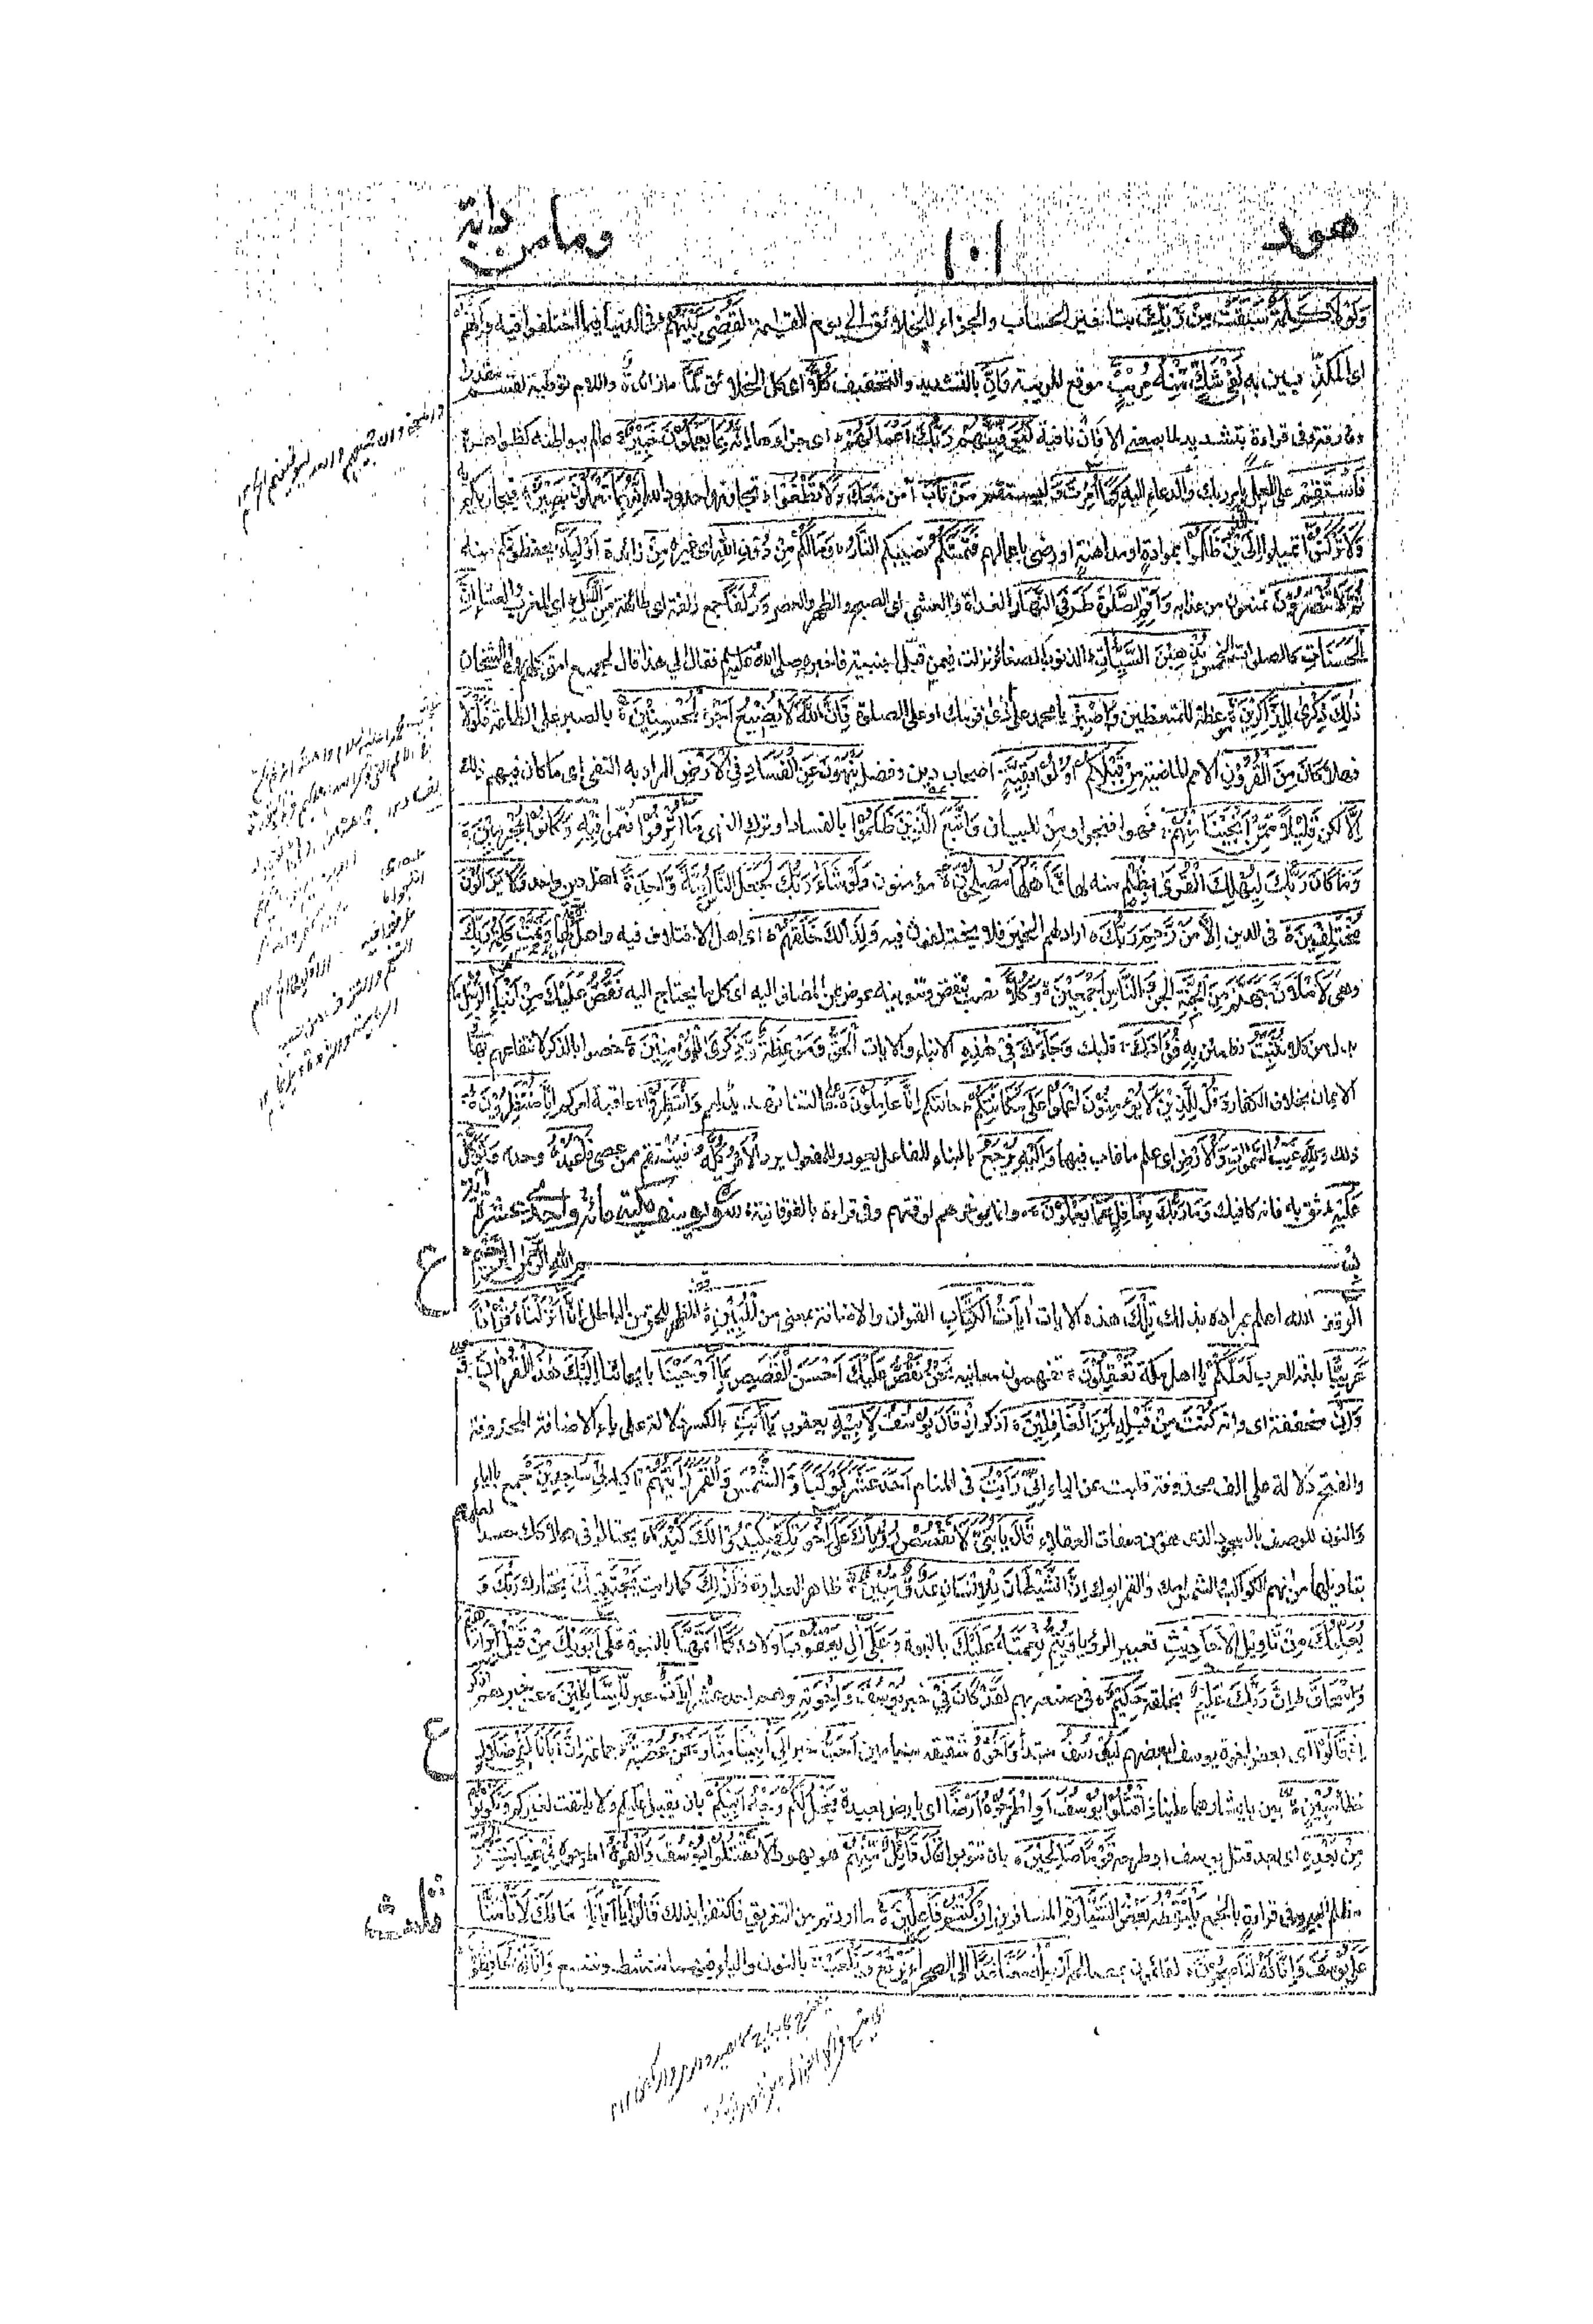 هود
١٠١
وما من دابة
وَلَوْلَا كَلِمَةٌ سَبَقَتْ مِنْ رَّبِّكَ بتاخير الحساب والجزاء للخلائق الى يوم القيامة لَقُضِىَ بَيْنَهُمْ فى الدنيا فيما اختلفوا فيه وَاِنَّهُمْ
اى المكذبين به لَفِىْ شَكٍّ مِّنْهُ مُرِيْبٍ موقع للريبة وَاِنَّ بالتشديد والتخفيف كُلًّا اى كل الخلائق لَّمَّا ما زائدة واللام توطئة لقسم مقدر
او فارقة وفى قراءة بتشديد لما بمعنى الا فَاِنْ نافية لَيُوَفِّيَنَّهُمْ رَبُّكَ اَعْمَالَهُمْ اى جزاءها اِنَّهٗ بِمَا يَعْمَلُوْنَ خَبِيْرٌ عالم ببواطنه كظواهره
فَاسْتَقِمْ على العمل بامر ربك والدعاء اليه كَمَا اُمِرْتَ وَ ليستقم مَنْ تَابَ آمن مَعَكَ وَلَا تَطْغَوْا تجاوزوا حدود الله اِنَّهٗ بِمَا تَعْمَلُوْنَ بَصِيْرٌ فيجازيكم به
وَلَا تَرْكَنُوْا تميلوا اِلَى الَّذِيْنَ ظَلَمُوْا بموادة او مداهنة او رضى باعمالهم فَتَمَسَّكُمُ تصيبكم النَّارُ وَمَا لَكُمْ مِّنْ دُوْنِ اللّٰهِ اى غيره مِنْ زائدة اَوْلِيَآءَ يحفظونكم منه
ثُمَّ لَا تُنْصَرُوْنَ تمنعون من عذابه وَاَقِمِ الصَّلٰوةَ طَرَفَىِ النَّهَارِ الغداة والعشى اى الصبح والظهر والعصر وَزُلَفًا جمع زلفة اى طائفة مِّنَ الَّيْلِ اى المغرب والعشاء اِنَّ
الْحَسَنَاتِ كالصلوات الخمس يُذْهِبْنَ السَّيِّاٰتِ الذنوب الصغائر نزلت فيمن قبل اجنبية فاخبره صلى الله عليه وسلم فقال الى هذا قال لجميع امتى كلهم رواه الشيخان
ذٰلِكَ ذِكْرٰى لِلذَّاكِرِيْنَ عظة للمتعظين وَاصْبِرْ يا محمد على اذى قومك او على الصلوة فَاِنَّ اللّٰهَ لَا يُضِيْعُ اَجْرَ الْمُحْسِنِيْنَ بالصبر على الطاعة فَلَوْلَا
فهلا كَانَ مِنَ الْقُرُوْنِ الامم الماضية مِنْ قَبْلِكُمْ اُولُوْا بَقِيَّةٍ اصحاب دين وفضل يَّنْهَوْنَ عَنِ الْفَسَادِ فِى الْاَرْضِ المراد به النفى اى ما كان فيهم ذلك
اِلَّا لكن قَلِيْلًا مِّمَّنْ اَنْجَيْنَا مِنْهُمْ نهوا فنجوا ومن للبيان وَاتَّبَعَ الَّذِيْنَ ظَلَمُوْا بالفساد او ترك النهى مَا اُتْرِفُوْا نعموا فِيْهِ وَكَانُوْا مُجْرِمِيْنَ
وَمَا كَانَ رَبُّكَ لِيُهْلِكَ الْقُرٰى بِظُلْمٍ منه لها وَّاَهْلُهَا مُصْلِحُوْنَ مؤمنون وَلَوْ شَآءَ رَبُّكَ لَجَعَلَ النَّاسَ اُمَّةً وَّاحِدَةً اهل دين واحد وَّلَا يَزَالُوْنَ
مُخْتَلِفِيْنَ فى الدين اِلَّا مَنْ رَّحِمَ رَبُّكَ اراد لهم الخير فلا يختلفون فيه وَلِذٰلِكَ خَلَقَهُمْ اى اهل الاختلاف فيه واهل الرحمة لها وَتَمَّتْ كَلِمَةُ رَبِّكَ
وهى لَاَمْلَاَنَّ جَهَنَّمَ مِنَ الْجِنَّةِ الجن وَالنَّاسِ اَجْمَعِيْنَ وَكُلًّا نصب بنقص وتنوينه عوض عن المضاف اليه اى كل ما يحتاج اليه نَقُصُّ عَلَيْكَ مِنْ اَنْبَآءِ الرُّسُلِ مَا
بدل من كلا نُثَبِّتُ نطمئن بِهٖ فُؤَادَكَ قلبك وَجَآءَكَ فِىْ هٰذِهِ الانباء والآيات الْحَقُّ وَمَوْعِظَةٌ وَّذِكْرٰى لِلْمُؤْمِنِيْنَ خصوا بالذكر لانتفاعهم بها فى
الايمان بخلاف الكفار وَقُلْ لِّلَّذِيْنَ لَا يُؤْمِنُوْنَ اعْمَلُوْا عَلٰى مَكَانَتِكُمْ حالتكم اِنَّا عَامِلُوْنَ على حالتنا تهديد لهم وَانْتَظِرُوْا عاقبة امركم اِنَّا مُنْتَظِرُوْنَ
ذلك وَلِلّٰهِ غَيْبُ السَّمٰوٰتِ وَالْاَرْضِ اى علم ما غاب فيهما وَاِلَيْهِ يُرْجَعُ بالبناء للفاعل يعود وللمفعول يرد الْاَمْرُ كُلُّهٗ فينتقم ممن عصى فَاعْبُدْهُ وحده وَتَوَكَّلْ
عَلَيْهِ ثق به فانه كافيك وَمَا رَبُّكَ بِغَافِلٍ عَمَّا يَعْمَلُوْنَ وانما يؤخرهم لوقتهم وفى قراءة بالفوقانية سورة يوسف مكية مائة واحدى عشرة اية
ع
بسم الله الرحمن الرحيم
الٓرٰ الله اعلم بمراده بذلك تِلْكَ هذه الايات اٰيَاتُ الْكِتٰبِ القران والاضافة بمعنى من الْمُبِيْنِ المظهر للحق من الباطل اِنَّا اَنْزَلْنَاهُ قُرْاٰنًا
عَرَبِيًّا بلغة العرب لَّعَلَّكُمْ يا اهل مكة تَعْقِلُوْنَ تفهمون معانيه نَحْنُ نَقُصُّ عَلَيْكَ اَحْسَنَ الْقَصَصِ بِمَا اَوْحَيْنَا بايحائنا اِلَيْكَ هٰذَا الْقُرْاٰنَ
وَاِنْ مخففة اى وانه كُنْتَ مِنْ قَبْلِهٖ لَمِنَ الْغَافِلِيْنَ اذكر اِذْ قَالَ يُوْسُفُ لِاَبِيْهِ يعقوب يَا اَبَتِ بالكسر دلالة على ياء الاضافة المحذوفة
والفتح دلالة على الف محذوفة قلبت عن الياء اِنِّىْ رَاَيْتُ فى المنام اَحَدَ عَشَرَ كَوْكَبًا وَّالشَّمْسَ وَالْقَمَرَ رَاَيْتُهُمْ تاكيد لِىْ سَاجِدِيْنَ جمع بالياء
والنون للوصف بالسجود الذى هو من صفات العقلاء قَالَ يَا بُنَىَّ لَا تَقْصُصْ رُؤْيَاكَ عَلٰى اِخْوَتِكَ فَيَكِيْدُوْا لَكَ كَيْدًا يحتالوا فى هلاكك حسدا لعلمهم
بتاويلها من انهم الكواكب والشمس امك والقمر ابوك اِنَّ الشَّيْطَانَ لِلْاِنْسَانِ عَدُوٌّ مُّبِيْنٌ ظاهر العداوة وَكَذٰلِكَ كما رايت يَجْتَبِيْكَ يختارك رَبُّكَ وَ
يُعَلِّمُكَ مِنْ تَاْوِيْلِ الْاَحَادِيْثِ تعبير الرؤيا وَيُتِمُّ نِعْمَتَهٗ عَلَيْكَ بالنبوة وَعَلٰى اٰلِ يَعْقُوْبَ اولاده كَمَا اَتَمَّهَا بالنبوة عَلٰى اَبَوَيْكَ مِنْ قَبْلُ اِبْرَاهِيْمَ
وَاِسْحَاقَ اِنَّ رَبَّكَ عَلِيْمٌ بخلقه حَكِيْمٌ فى صنعه بهم لَقَدْ كَانَ فِىْ خبر يُوْسُفَ وَاِخْوَتِهٖ وهم احد عشر اٰيَاتٌ عبر لِّلسَّآئِلِيْنَ عن خبرهم اذكر
ع
اِذْ قَالُوْا اى بعض اخوة يوسف لبعضهم لَيُوْسُفُ مبتدأ وَاَخُوْهُ شقيقه بنيامين اَحَبُّ خبر اِلٰى اَبِيْنَا مِنَّا وَنَحْنُ عُصْبَةٌ جماعة اِنَّ اَبَانَا لَفِىْ ضَلَالٍ
خطأ مُّبِيْنٍ بين بايثارهما علينا اقْتُلُوْا يُوْسُفَ اَوِ اطْرَحُوْهُ اَرْضًا اى بارض بعيدة يَّخْلُ لَكُمْ وَجْهُ اَبِيْكُمْ بان يقبل عليكم ولا يلتفت لغيركم وَتَكُوْنُوْا
مِنْ بَعْدِهٖ اى بعد قتل يوسف او طرحه قَوْمًا صَالِحِيْنَ بان تتوبوا قَالَ قَآئِلٌ مِّنْهُمْ هو يهودا لَا تَقْتُلُوْا يُوْسُفَ وَاَلْقُوْهُ اطرحوه فِىْ غَيَابَتِ الْجُبِّ
مظلم البير وفى قراءة بالجمع يَلْتَقِطْهُ بَعْضُ السَّيَّارَةِ المسافرين اِنْ كُنْتُمْ فَاعِلِيْنَ ما اردتم من التفريق فاكتفوا بذلك قَالُوْا يَا اَبَانَا مَا لَكَ لَا تَاْمَنَّا
ثلث
عَلٰى يُوْسُفَ وَاِنَّا لَهٗ لَنَاصِحُوْنَ لقائمون بمصالحه اَرْسِلْهُ مَعَنَا غَدًا الى الصحراء يَّرْتَعْ وَيَلْعَبْ بالنون والياء فيهما ننشط ونتسع وَاِنَّا لَهٗ لَحَافِظُوْنَ